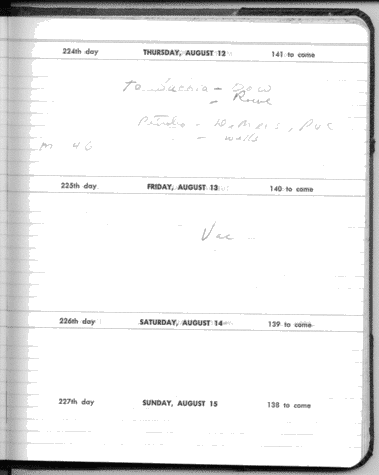 224th day THURSDAY, AUGUST 12 141 to come
To
- Rowe
- Wells
M 46
225th day FRIDAY, AUGUST 13 140 to come
Vac
226th day SATURDAY, AUGUST 14 139 to come
227th day SUNDAY, AUGUST 15 138 to come